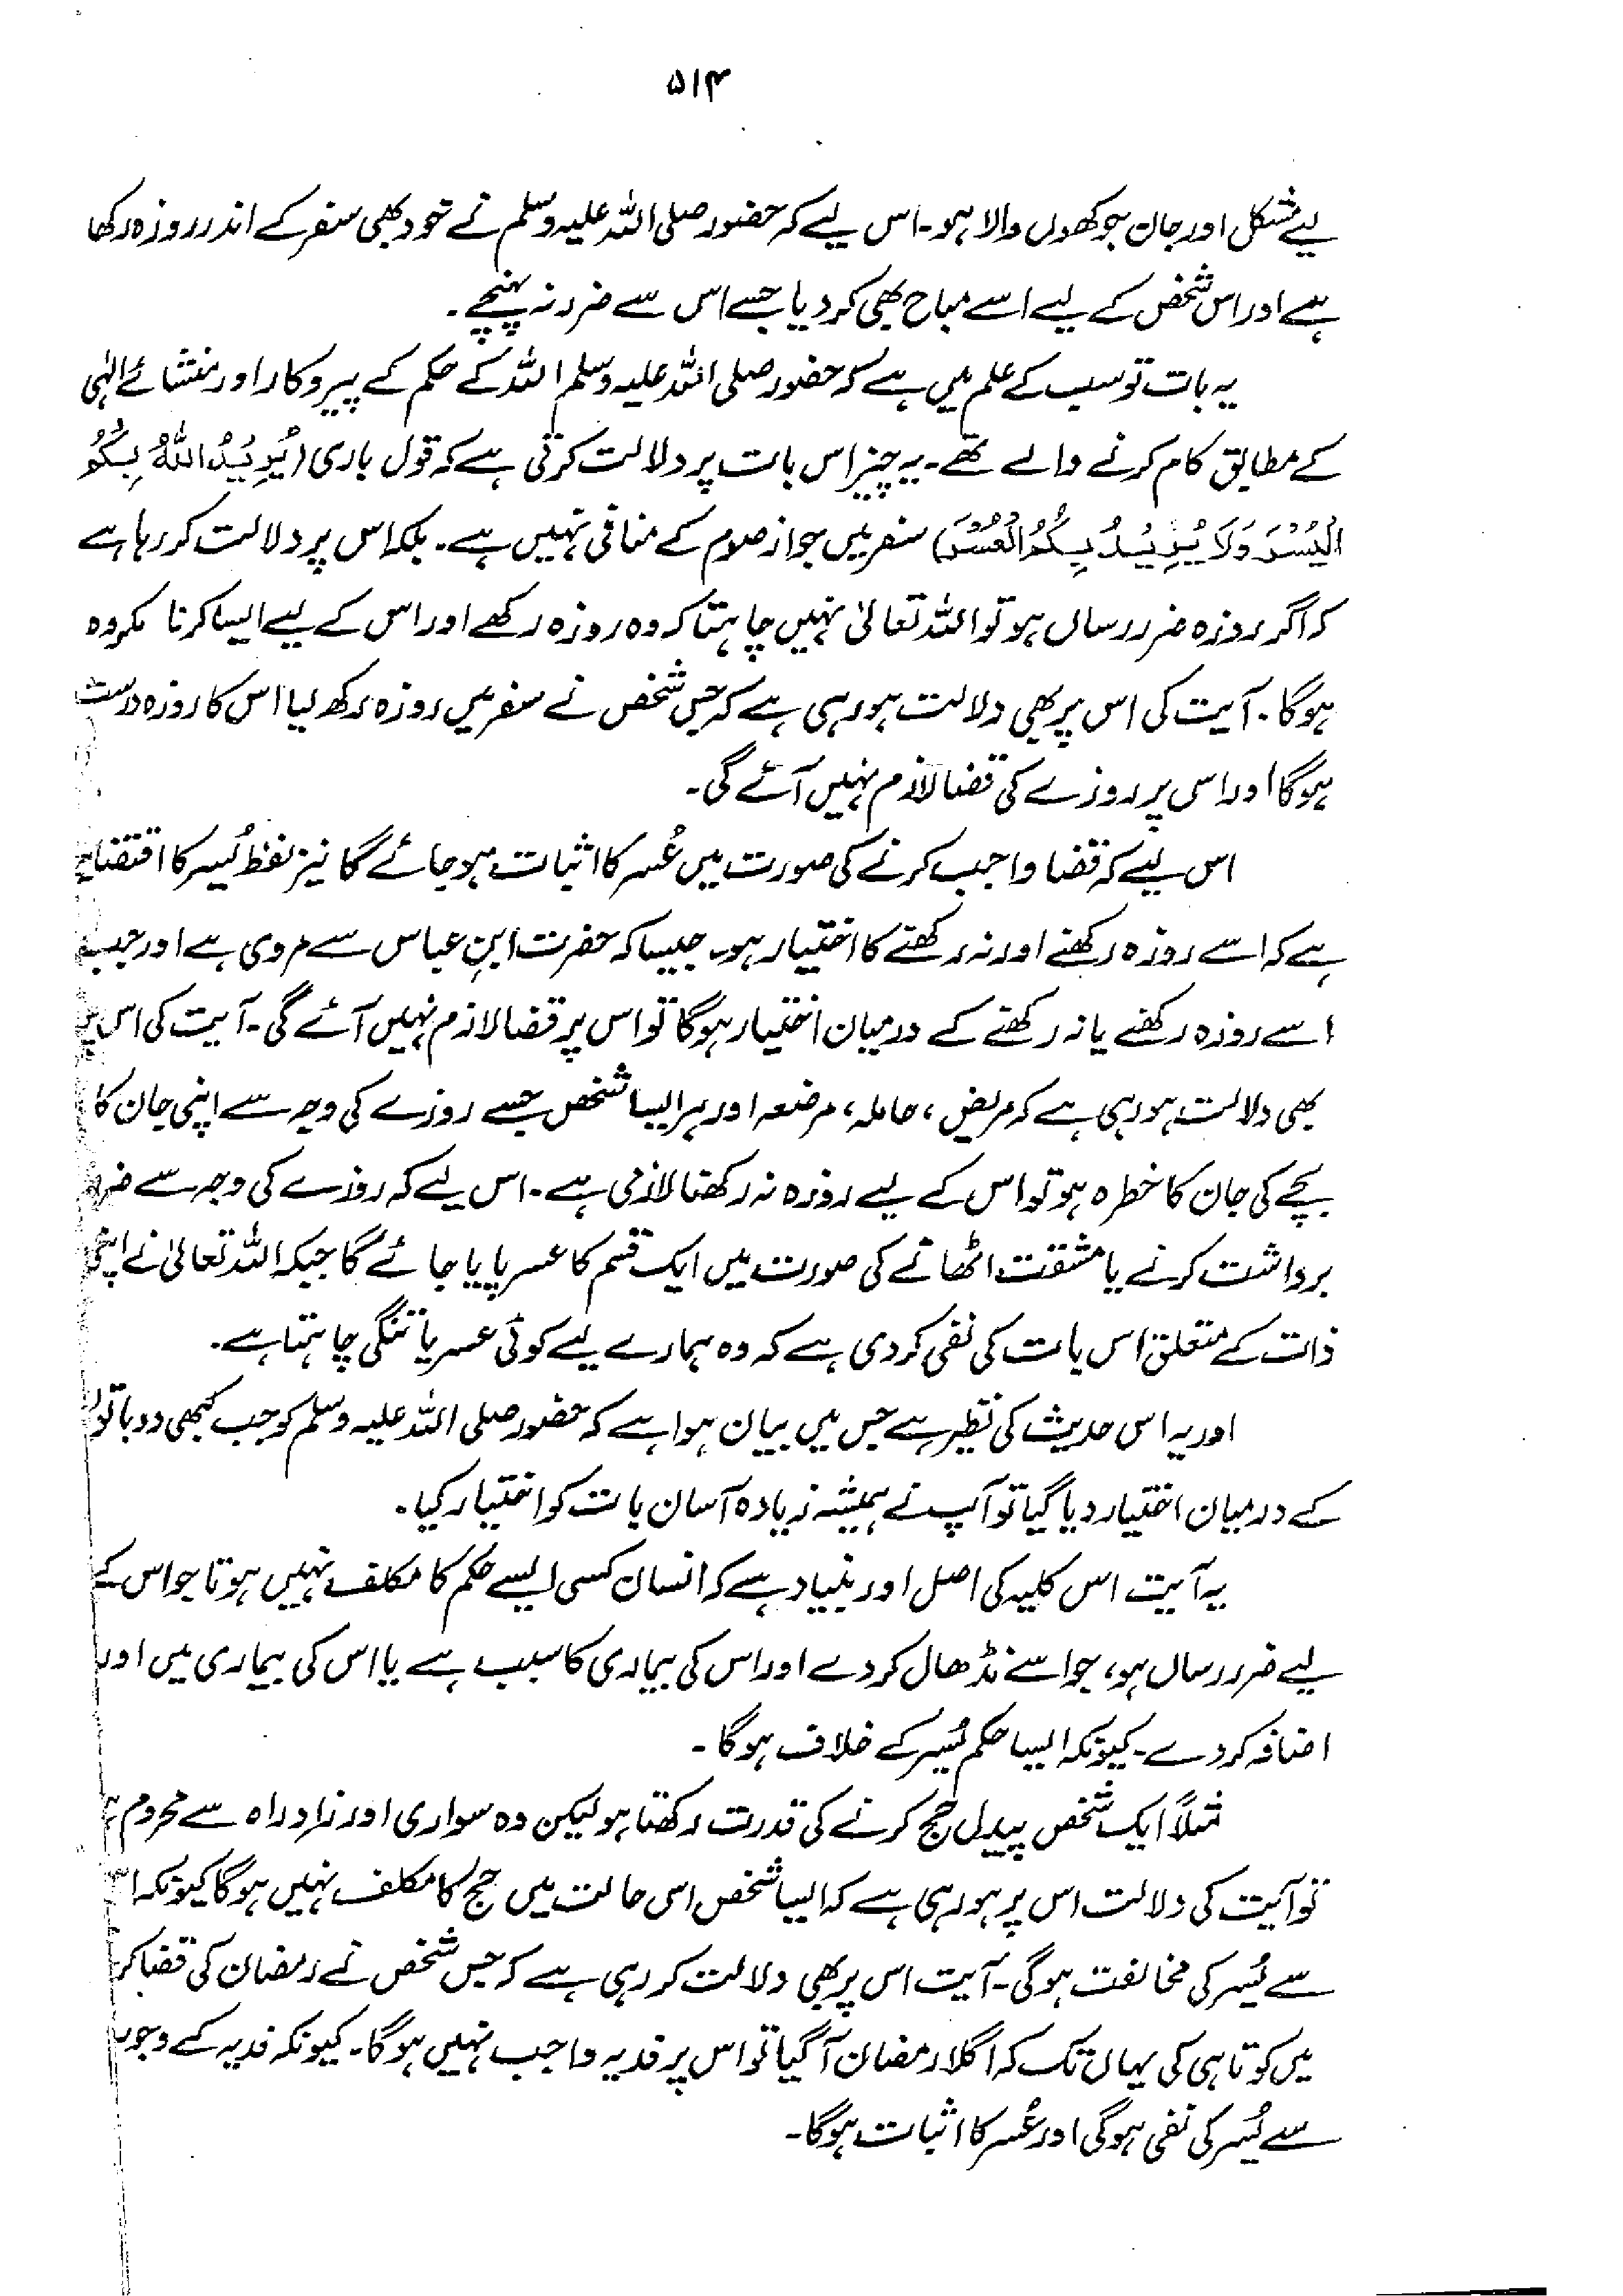 ۵۱۴
لیے مشکل اور جان جوکھوں والا ہو۔ اس لیے کہ حضور صلی اللہ علیہ وسلم نے خود بھی سفر کے اندر روزہ رکھا
ہے اور اس شخص کے لیے اسے مباح بھی کر دیا جسے اس سے ضرر نہ پہنچے۔
یہ بات تو سب کے علم میں ہے کہ حضور صلی اللہ علیہ وسلم اللہ کے حکم کے پیروکار اور منشائے الٰہی
کے مطابق کام کرنے والے تھے۔ یہ چیز اس بات پر دلالت کرتی ہے کہ قول باری (یُرِیْدُ اللّٰهُ بِکُمُ
الْیُسْرَ وَلَا یُرِیْدُ بِکُمُ الْعُسْرَ) سفر میں جواز صوم کے منافی نہیں ہے۔ بلکہ اس پر دلالت کر رہا ہے
کہ اگر روزہ ضرر رساں ہو تو اللہ تعالیٰ نہیں چاہتا کہ وہ روزہ رکھے اور اس کے لیے ایسا کرنا مکروہ
ہوگا۔ آیت کی اس پر بھی دلالت ہو رہی ہے کہ جس شخص نے سفر میں روزہ رکھ لیا اس کا روزہ درست
ہوگا اور اس پر روزے کی قضا لازم نہیں آئے گی۔
اس لیے کہ قضا واجب کرنے کی صورت میں عُسر کا اثبات ہو جائے گا نیز لفظ یُسر کا اقتضایہ
ہے کہ اسے روزہ رکھنے اور نہ رکھنے کا اختیار ہو۔ جیسا کہ حضرت ابنِ عباس سے مروی ہے اور جب
اسے روزہ رکھنے یا نہ رکھنے کے درمیان اختیار ہوگا تو اس پر قضا لازم نہیں آئے گی۔ آیت کی اس پر
بھی دلالت ہو رہی ہے کہ مریض، حاملہ، مرضعہ اور ہر ایسا شخص جسے روزے کی وجہ سے اپنی جان کا
بچے کی جان کا خطرہ ہو تو اس کے لیے روزہ نہ رکھنا لازمی ہے۔ اس لیے کہ روزے کی وجہ سے ضرر
برداشت کرنے یا مشقت اٹھانے کی صورت میں ایک قسم کا عسر پایا جائے گا جبکہ اللہ تعالیٰ نے اپنی
ذات کے متعلق اس بات کی نفی کر دی ہے کہ وہ ہمارے لیے کوئی عسر یا تنگی چاہتا ہے۔
اور یہ اس حدیث کی نظیر ہے جس میں بیان ہوا ہے کہ حضور صلی اللہ علیہ وسلم کو جب کبھی دو باتوں
کے درمیان اختیار دیا گیا تو آپ نے ہمیشہ زیادہ آسان بات کو اختیار کیا۔
یہ آیت اس کلیہ کی اصل اور بنیاد ہے کہ انسان کسی ایسے حکم کا مکلف نہیں ہوتا جو اس کے
لیے ضرر رساں ہو، جو اسے نڈھال کر دے اور اس کی بیماری کا سبب بنے یا اس کی بیماری میں اور
اضافہ کر دے۔ کیونکہ ایسا حکم یُسر کے خلاف ہوگا۔
مثلاً ایک شخص پیدل حج کرنے کی قدرت رکھتا ہو لیکن وہ سواری اور زادِ راہ سے محروم
تو آیت کی دلالت اس پر ہو رہی ہے کہ ایسا شخص اس حالت میں حج کا مکلف نہیں ہوگا کیونکہ اس
سے یُسر کی مخالفت ہوگی۔ آیت اس پر بھی دلالت کر رہی ہے کہ جس شخص نے رمضان کی قضا کرنے
میں کوتاہی کی یہاں تک کہ اگلا رمضان آگیا تو اس پر فدیہ واجب نہیں ہوگا۔ کیونکہ فدیہ کے وجوب
سے یُسر کی نفی ہوگی اور عُسر کا اثبات ہوگا۔